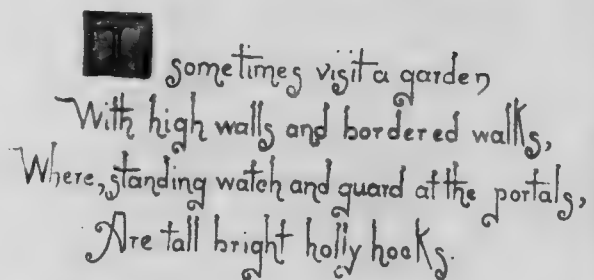 I sometimes visit a garden
With high walls and bordered walks,
Where, standing watch and guard at the portals,
Are tall bright holly hocks.